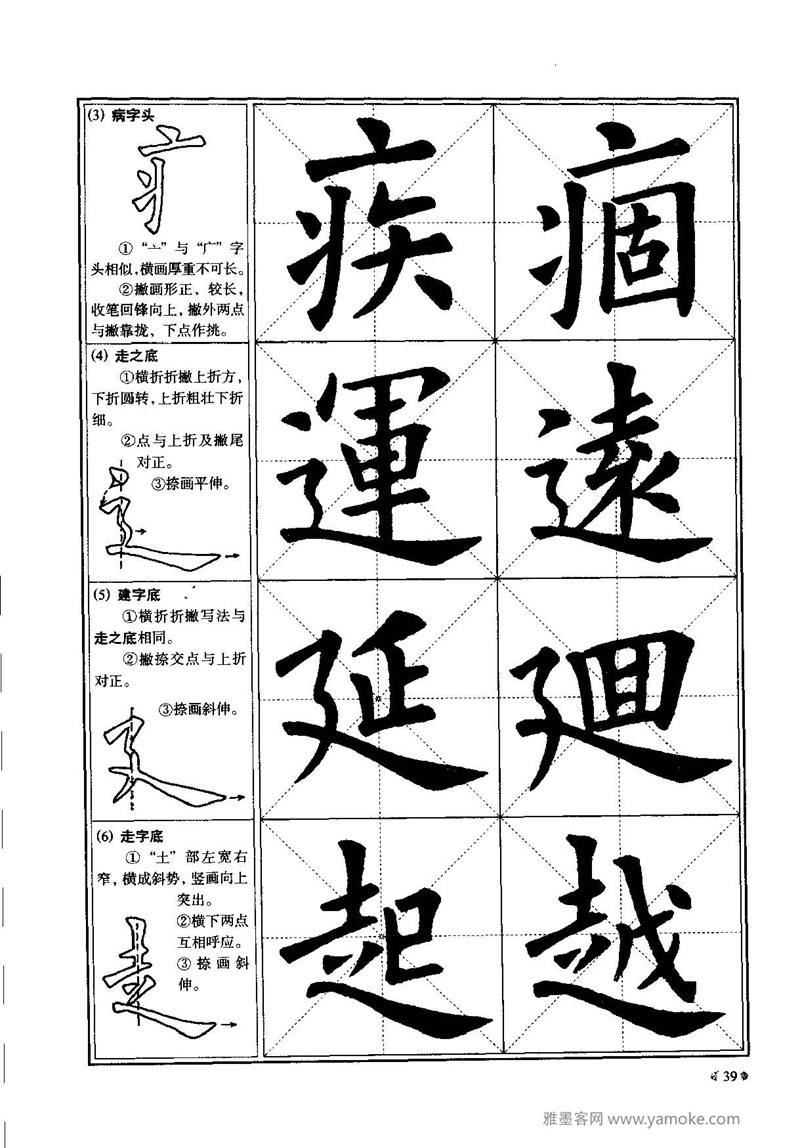 (3) 病字头
① “亠” 与 “广” 字
头相似,横画厚重不可长。
②撇画形正、较长,
收笔回锋向上,撇外两点
与撇靠拢,下点作挑。
疾 痼
(4) 走之底
①横折折撇上折方,
下折圆转,上折粗壮下折
细。
②点与上折及撇尾
对正。
③捺画平伸。
運 遠
(5) 建字底
①横折折撇写法与
走之底相同。
②撇捺交点与上折
对正。
③捺画斜伸。
延 廻
(6) 走字底
① “土” 部左宽右
窄,横成斜势,竖画向上
突出。
②横下两点
互相呼应。
③捺画斜
伸。
起 越
39
雅墨客网 www.yamoke.com